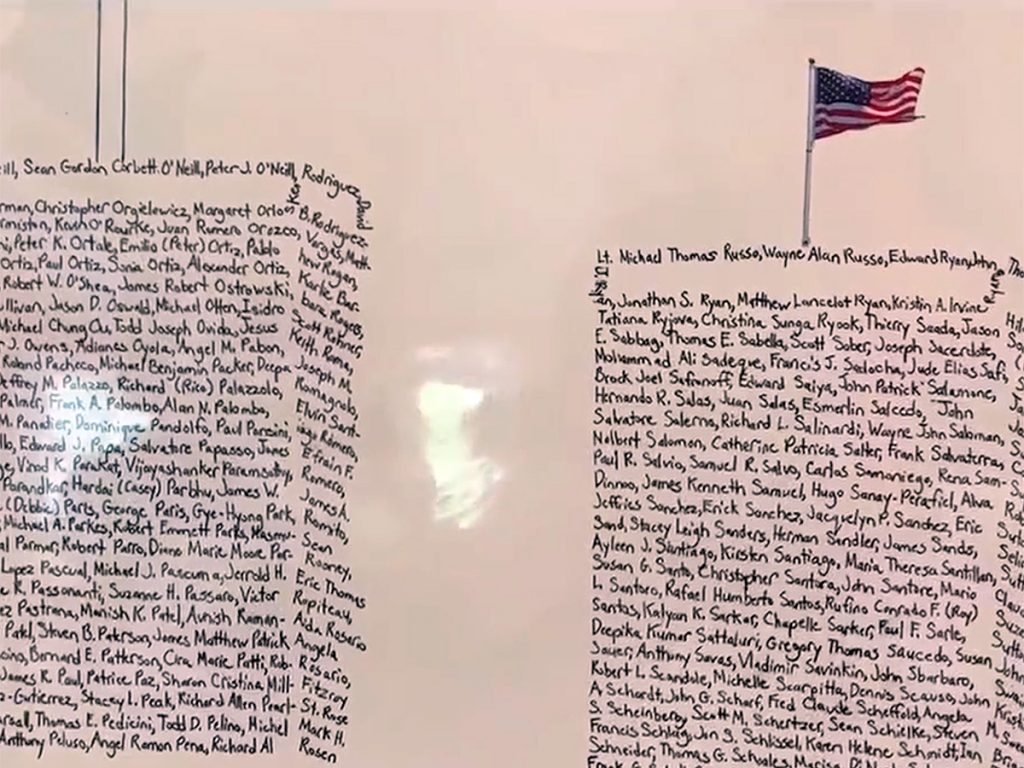 ill, Sean Gordon Corbett O'Neill, Peter J. O'Neill,
rman, Christopher Orgielewicz, Margaret Orlos
rmiston, Kevin O'Rourke, Juan Romero Orozco,
ni, Peter K. Ortale, Emilio (Peter) Ortiz, Pablo
Ortiz, Paul Ortiz, Sonia Ortiz, Alexander Ortiz,
Robert W. O'Shea, James Robert Ostrowski,
ullivan, Jason D. Oswald, Michael Otten, Isidro
Michael Chung Ou, Todd Joseph Ouida, Jesus
J. Owens, Adianes Oyola, Angel M. Pabon,
Roland Pacheco, Michael Benjamin Packer, Deepa
Jeffrey M. Palazzo, Richard (Rico) Palazzolo,
Palmer, Frank A. Palombo, Alan N. Palombo,
M. Panatier, Dominique Pandolfo, Paul Pansini,
llo, Edward J. Papa, Salvatore Papasso, James
ge, Vinod K. Parakat, Vijayashanker Paramsothy,
Parandkar, Hardai (Casey) Parbhu, James W.
(Debbie) Paris, George Paris, Gye-Hyong Park,
Michael A. Parkes, Robert Emmett Parks, Hasmu-
al Parmar, Robert Parro, Diane Marie Moore Par-
Lopez Pascual, Michael J. Pascuma, Jerrold H.
e R. Passananti, Suzanne H. Passaro, Victor
ez Pastrana, Manish K. Patel, Avnish Raman-
Patel, Steven B. Paterson, James Matthew Patrick
cino, Bernard E. Patterson, Cira Marie Patti, Rob-
James R. Paul, Patrice Paz, Sharon Cristina Mill-
z-Gutierrez, Stacey L. Peak, Richard Allen Pearl-
arsall, Thomas E. Pedicini, Todd D. Pelino, Michel
Anthony Peluso, Angel Ramon Pena, Richard Al
Rodriguez, David
B. Rodriguez-
Vargas, Matt-
hew Rogan,
Karlie Bar-
bara Rogers,
Scott Rohner,
Keith Roma,
Joseph M.
Romagnolo,
Elvin Sant-
iago Romero,
Efrain F.
Romero,
James A.
Romito,
Sean
Rooney,
Eric Thomas
Ropiteau,
Aida Rosario
Angela
Rosario,
Fitzroy
St. Rose
Mark H.
Rosen
Lt. Michael Thomas Russo, Wayne Alan Russo, Edward Ryan, John
Ryan
an, Jonathan S. Ryan, Matthew Lancelot Ryan, Kristin A. Irvine
Tatiana Ryjova, Christina Sunga Ryook, Thierry Saada, Jason
E. Sabbag, Thomas E. Sabella, Scott Saber, Joseph Sacerdote,
Mohammad Ali Sadeque, Francis J. Sadocha, Jude Elias Safi,
Brock Joel Safronoff, Edward Saiya, John Patrick Salamone,
Hernando R. Salas, Juan Salas, Esmerlin Salcedo, John
Salvatore Salerno, Richard L. Salinardi, Wayne John Saloman,
Nolbert Salomon, Catherine Patricia Salter, Frank Salvaterra,
Paul R. Salvio, Samuel R. Salvo, Carlos Samaniego, Rena Sam-
Dinnoo, James Kenneth Samuel, Hugo Sanay-Perafiel, Alva
Jeffries Sanchez, Erick Sanchez, Jacquelyn P. Sanchez, Eric
Sand, Stacey Leigh Sanders, Herman Sandler, James Sands,
Ayleen J. Santiago, Kirsten Santiago, Maria Theresa Santillan,
Susan G. Santo, Christopher Santora, John Santore, Mario
L. Santoro, Rafael Humberto Santos, Rufino Conrado F. (Roy)
Santos, Kalyan K. Sarkar, Chapelle Sarker, Paul F. Sarle,
Deepika Kumar Sattaluri, Gregory Thomas Saucedo, Susan
Sauer, Anthony Savas, Vladimir Savinkin, John Sbarbaro,
Robert L. Scandole, Michelle Scarpitta, Dennis Scauso, John
A. Schardt, John G. Scharf, Fred Claude Scheffold, Angela
S. Scheinberg, Scott M. Schertzer, Sean Schielke, Steven
Francis Schlag, Jon S. Schlissel, Karen Helene Schmidt, Ian
Schneider, Thomas G. Schoales, Marisa Di